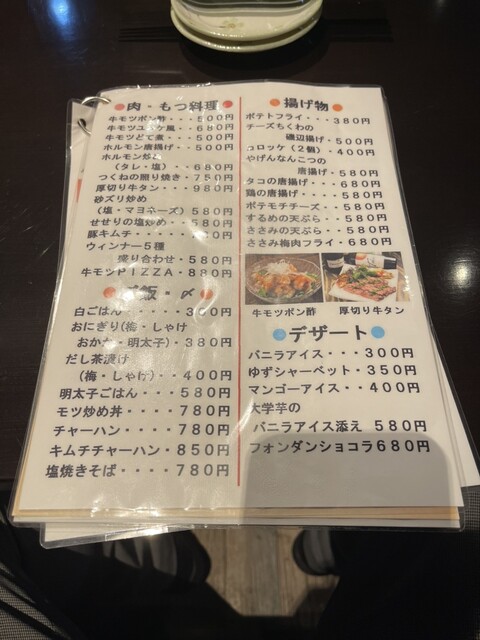 肉・もつ料理
牛モツポン酢・・・500円
牛モツユッケ風・・680円
牛モツどて煮・・・500円
ホルモン唐揚げ・・500円
ホルモン炒め
(タレ・塩)・・680円
つくねの照り焼き・750円
厚切り牛タン・・・980円
砂ズリ炒め
(塩・マヨネーズ)580円
せせりの塩炒め・・580円
豚キムチ・・・・・・
ウィンナー5種
盛り合わせ・580円
牛モツPIZZA・880円
ご飯・〆
白ごはん・・・・300円
おにぎり(梅・しゃけ
おかか・明太子)・380円
だし茶漬け
(梅・しゃけ)・・400円
明太子ごはん・・・580円
モツ炒め丼・・・・780円
チャーハン・・・・780円
キムチチャーハン・850円
塩焼きそば・・・・780円
揚げ物
ポテトフライ・・・380円
チーズちくわの
磯辺揚げ・500円
コロッケ(2個)・400円
やげんなんこつの
唐揚げ・580円
タコの唐揚げ・・・680円
鶏の唐揚げ・・・・580円
ポテモチチーズ・・580円
するめの天ぷら・・580円
ささみの天ぷら・・580円
ささみ梅肉フライ・680円
牛モツポン酢 厚切り牛タン
デザート
バニラアイス・・・300円
ゆずシャーベット・350円
マンゴーアイス・・400円
大学芋の
バニラアイス添え 580円
フォンダンショコラ680円